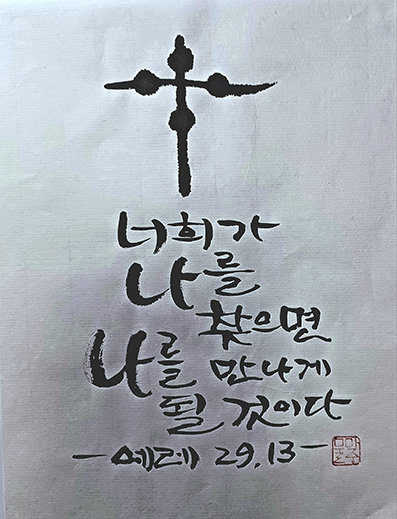 너희가
나를
찾으면
나를 만나게
될 것이다
- 예레 29,13 -